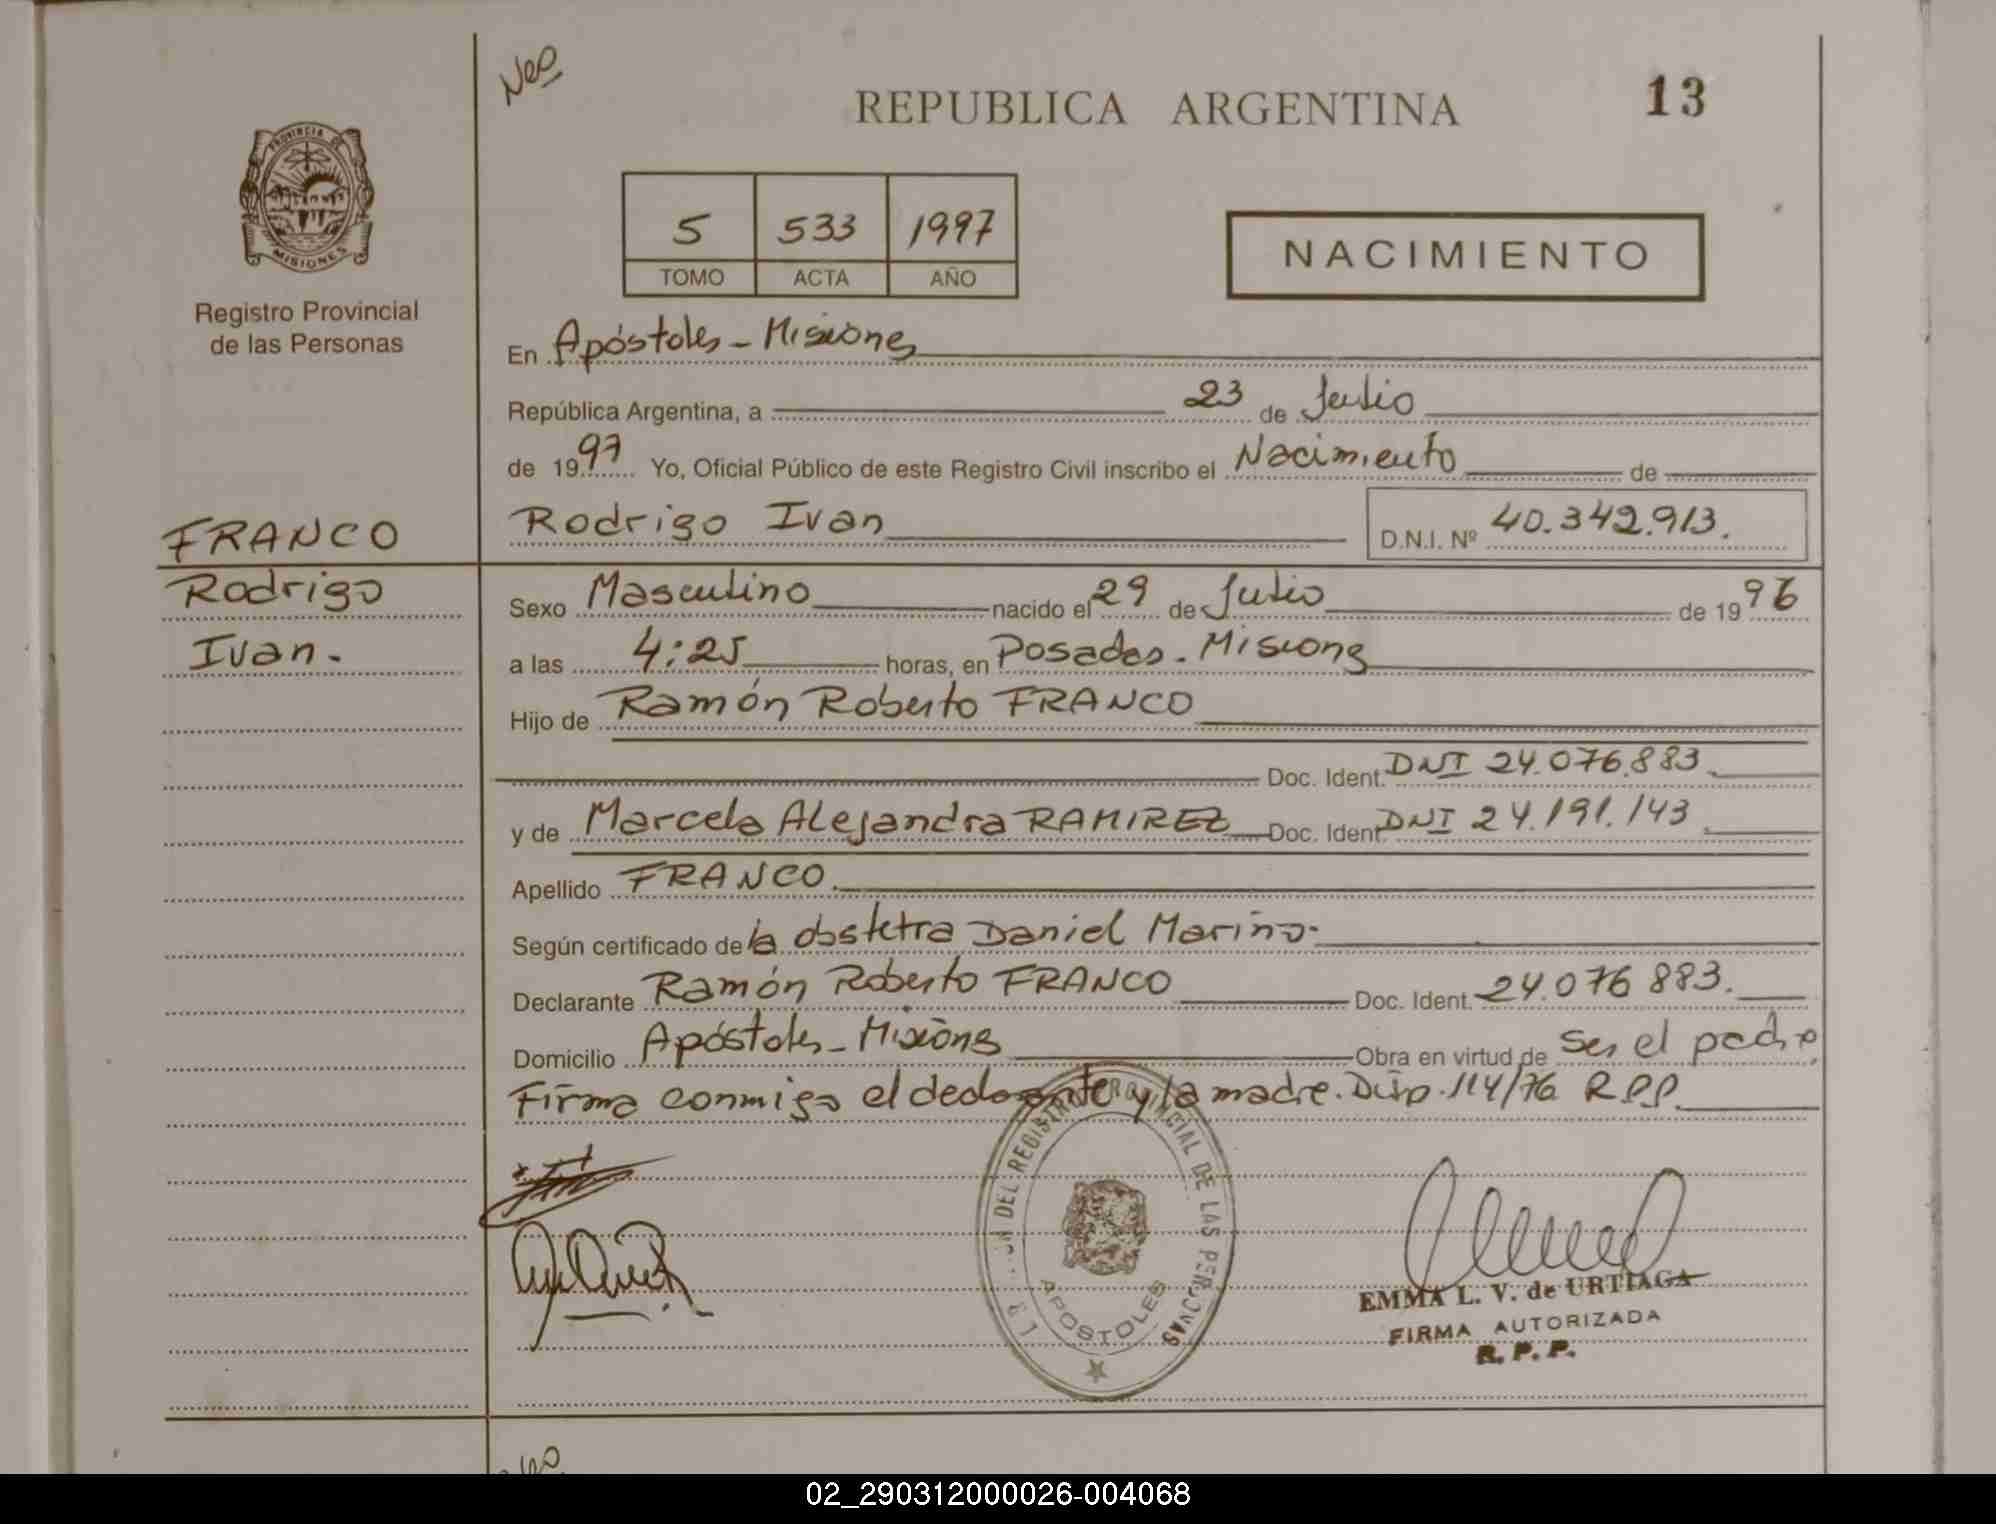 Neo
REPUBLICA ARGENTINA
13
PROVINCIA DE
MISIONES
Registro Provincial
de las Personas
5 533 1997
TOMO ACTA AÑO
NACIMIENTO
En Apóstoles - Misiones
República Argentina, a 23 de Julio
de 1997 Yo, Oficial Público de este Registro Civil inscribo el Nacimiento de
FRANCO
Rodrigo Ivan D.N.I. Nº 40.342.913.
Rodrigo
Ivan.
Sexo Masculino nacido el 29 de Julio de 1996
a las 4:25 horas, en Posadas - Misiones
Hijo de Ramón Roberto FRANCO
Doc. Ident. DNI 24.076.883
y de Marcela Alejandra RAMIREZ Doc. Ident. DNI 24.191.143
Apellido FRANCO.
Según certificado de la obstetra Daniel Mariño.
Declarante Ramón Roberto FRANCO Doc. Ident. 24.076 883.
Domicilio Apóstoles - Misiones Obra en virtud de Ser el padre
Firma conmigo el declarante y la madre. Disp. 114/76 R.P.P.
DEL REGISTRO PROVINCIAL DE LAS PERSONAS
APOSTOLES
EMMA L. V. de URTIAGA
FIRMA AUTORIZADA
R. P. P.
02_290312000026-004068